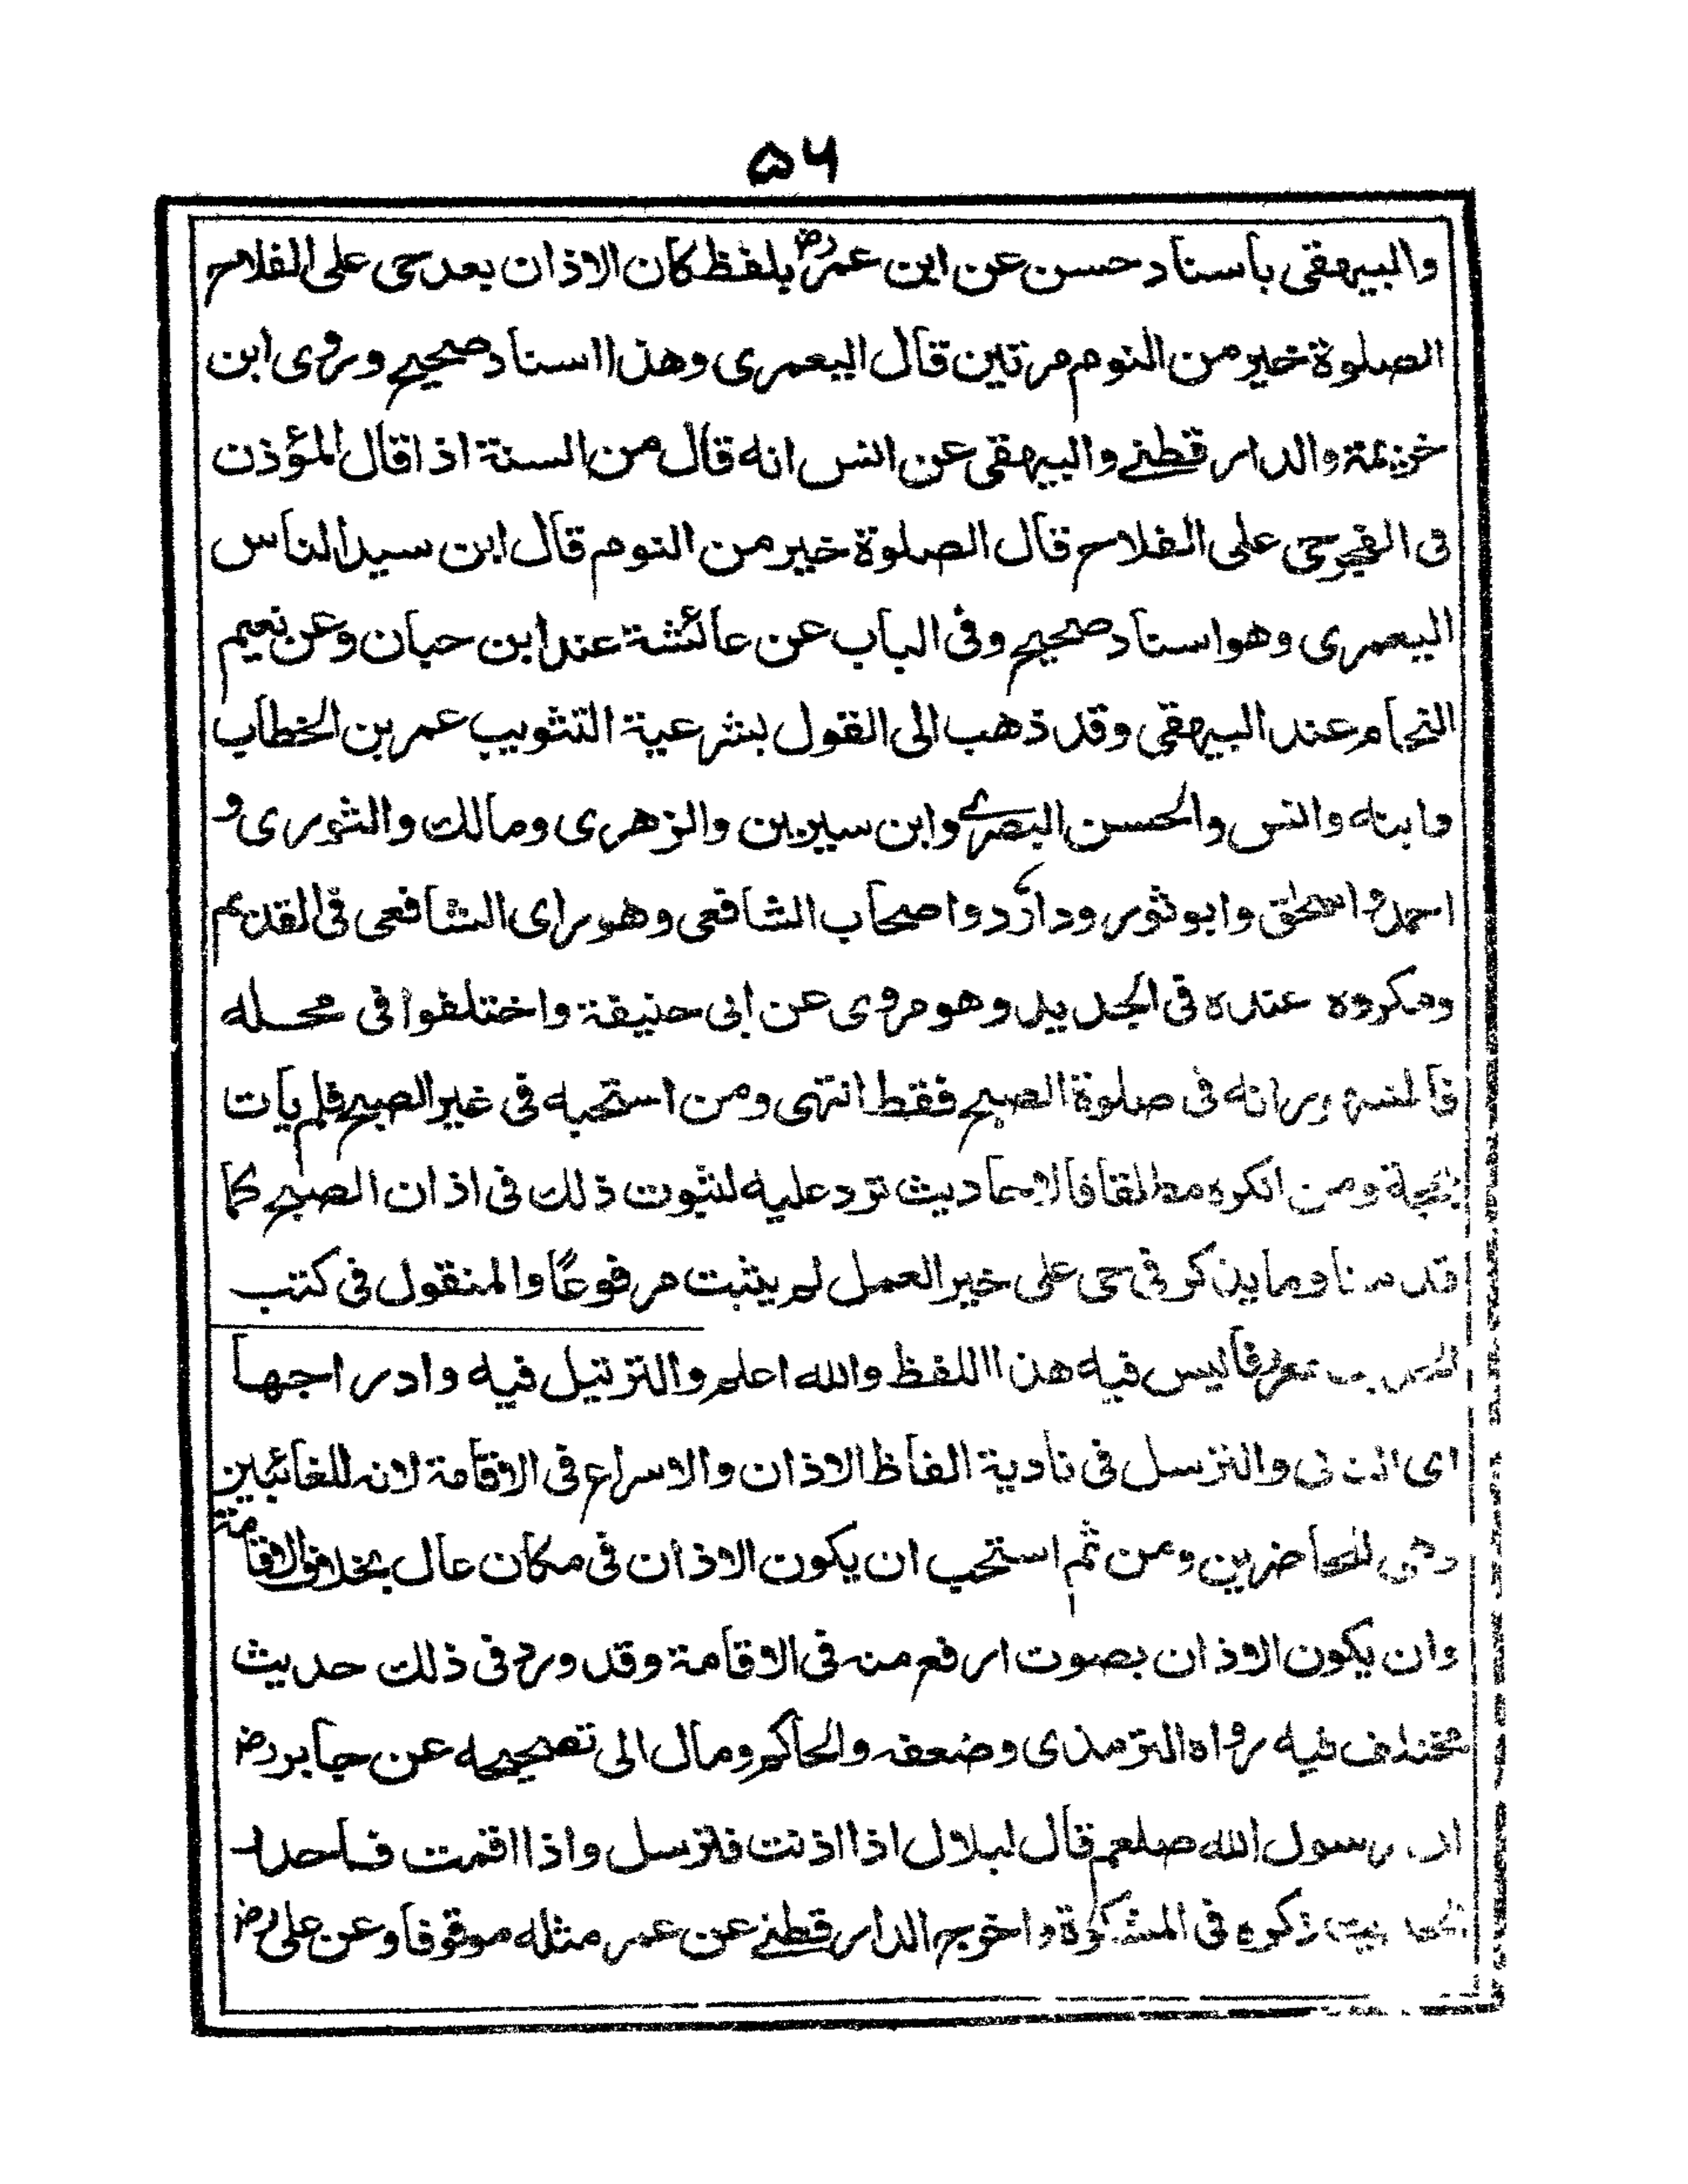 ۵۶
والبيهقى بأسناد حسن عن ابن عمرؓ بلفظ كان الاذان بعد حى على الفلاح
الصلوة خير من النوم مرتين قال اليعمرى وهذا اسناد صحيح وروى ابن
خزيمة والدارقطنے والبيهقى عن انس انه قال من السنة اذا قال المؤذن
فى الفجر حى على الفلاح قال الصلوة خير من النوم قال ابن سيد الناس
اليعمرى وهو اسناد صحيح وفى الباب عن عائشة عند ابن حبان وعن نعيم
النحام عند البيهقى وقد ذهب الى القول بشرعية التثويب عمر بن الخطاب
وابنه وانس والحسن البصرے وابن سيرين والزهرى ومالك والثورى و
احمد واسحق وابو ثور وداؤد واصحاب الشافعى وهو راى الشافعى فى القديم
ومكروه عنده فى الجديد وهو مروى عن ابى حنيفة واختلفوا فى محله
فالمشهور انه فى صلوة الصبح فقط انتهى ومن استحبه فى غير الصبح فلم يات
بحجة ومن انكره مطلقا فالاحاديث ترد عليه لثبوت ذلك فى اذان الصبح كما
قدمنا وما يذكر فى حى على خير العمل لم يثبت مرفوعًا والمنقول فى كتب
ليس فيه هذا اللفظ والله اعلم والترتيل فيه وادراجها
اى التانى والترسل فى تادية الفاظ الاذان والاسراع فى الاقامة لانه للغائبين
وهى للحاضرين ومن ثم استحب ان يكون الاذان فى مكان عال بخلاف الاقامة
وان يكون الاذان بصوت ارفع منه فى الاقامة وقد ورد فى ذلك حديث
مختلف فيه رواه الترمذى وضعفه والحاكم ومال الى تصحيحه عن جابر رض
ان رسول الله صلعم قال لبلال اذا اذنت فترسل واذا اقمت فاحدر
الحديث ذكره فى المشكوة واخرج الدارقطنے عن عمر مثله موقوفا وعن على رض